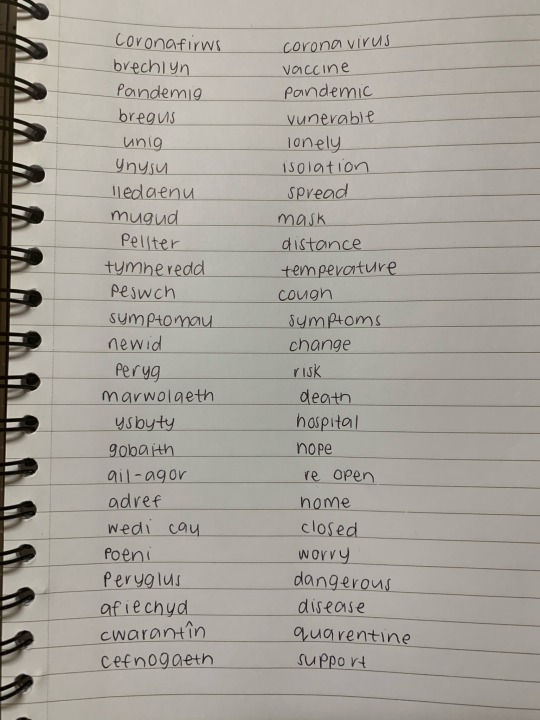 coronafirws coronavirus
brechlyn vaccine
pandemig pandemic
bregus vunerable
unig lonely
ynysu isolation
lledaenu spread
mugud mask
pellter distance
tymheredd temperature
peswch cough
symptomau symptoms
newid change
peryg risk
marwolaeth death
ysbyty hospital
gobaith hope
ail-agor re open
adref home
wedi cau closed
poeni worry
peryglus dangerous
afiechyd disease
cwarantîn quarentine
cefnogaeth support